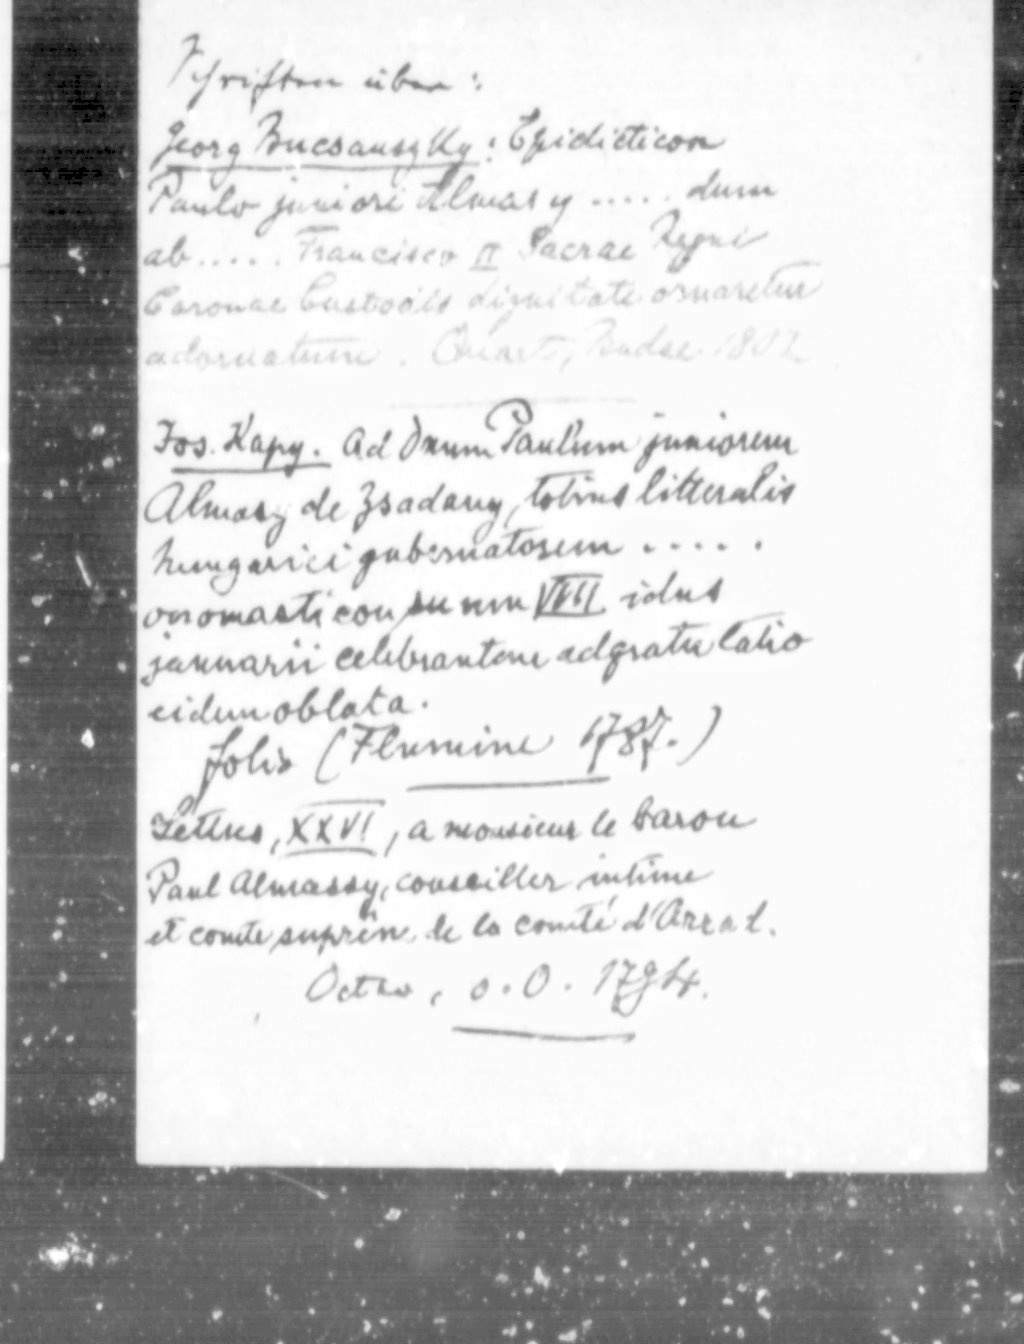 Schriften über:
Georg Bucsanszky: Epidicticon
Paulo juniori Almasy ..... dum
ab ..... Francisco II Sacrae Regni
Coronae Custodis dignitate ornaretur
adornatum. Quart, Budae 1802
Jos. Kapy. Ad Dnum Paulum juniorem
Almasy de Zsadany, totius litteralis
hungarici gubernatorem .....
onomasticon suum VIII idus
januarii celebrantem adgratulatio
eidem oblata.
folio (Flumine 1787.)
Lettres, XXVI, a monsieur le baron
Paul Almassy, conseiller intime
et comte suprêm. de la comté d'Arrad.
Octav, o.O. 1794.